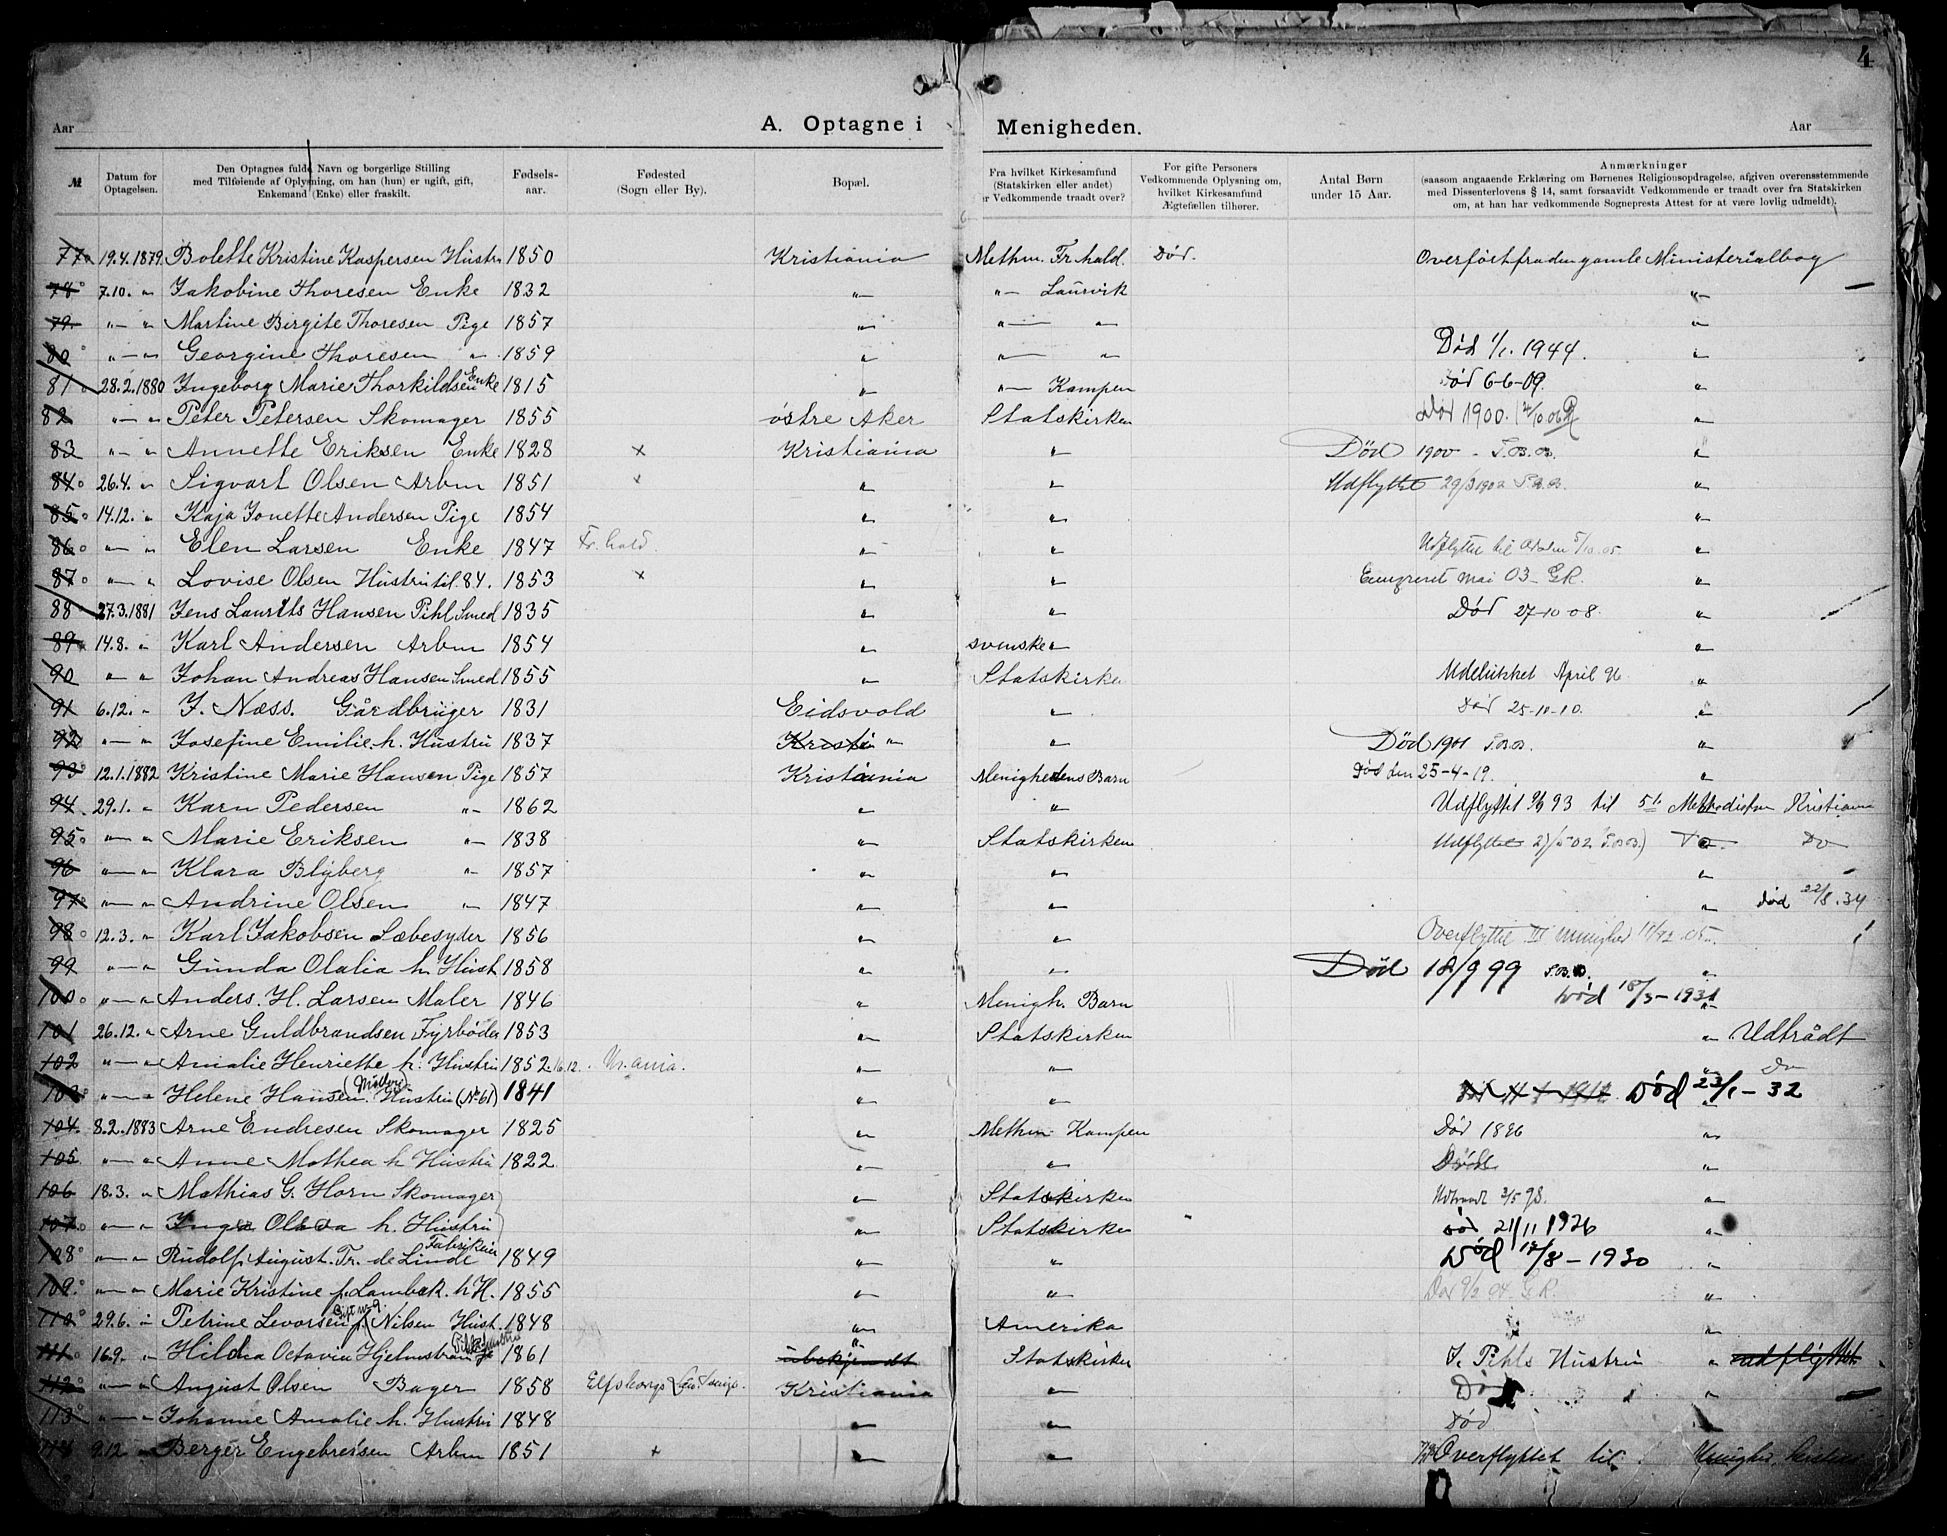 4
Aar
A. Optagne i Menigheden.
Aar
№
Datum for Optagelsen.
Den Optagnes fulde Navn og borgerlige Stilling
med Tilføiende af Oplysning, om han (hun) er ugift, gift,
Enkemand (Enke) eller fraskilt.
Fødsels-aar.
Fødested
(Sogn eller By).
Bopæl.
Fra hvilket Kirkesamfund
(Statskirken eller andet)
er Vedkommende traadt over?
For gifte Personers
Vedkommende Oplysning om,
hvilket Kirkesamfund
Ægtefællen tilhører.
Antal Børn
under 15 Aar.
Anmærkninger
(saasom angaaende Erklæring om Børnenes Religionsopdragelse, afgiven overensstemmende
med Dissenterlovens § 14, samt forsaavidt Vedkommende er traadt over fra Statskirken
om, at han har vedkommende Sogneprests Attest for at være lovlig udmeldt).
77 19.4.1879 Bolette Kristine Kaspersen Hustru 1850 Kristiania Methm. Fr.hald. Død. Overført fra den gamle Ministerialbog
78 7.10. " Jakobine Thoresen Enke 1832 " " Laurvik "
79 " " Martine Birgite Thoresen Pige 1857 " " " "
80 " " Georgine Thoresen " 1859 " " " Død 1/1. 1944. "
81 28.2.1880 Ingeborg Marie Thorkildsen Enke 1815 " " Kampen Død 6-6-09. "
82 " " Peter Petersen Skomager 1855 østre Aker Statskirken Død 1900. "
83 " " Annette Eriksen Enke 1828 x Kristiania " Død 1900 - "
84 26.4. " Sigvart Olsen Arbm 1851 x " " Udflyttet 29/3 1902 "
85 14.12. " Kaja Jonette Andersen Pige 1854 " " "
86 " " Elen Larsen Enke 1847 Fr.hald. " " Udflyttet til "
87 " " Lovise Olsen Hustru til 84. 1853 x " " Emigreret mai 03 - G.R. "
88 27.3.1881 Jens Laurits Hansen Pihl Smed 1835 " " Død 27-10-08. "
89 14.8. " Karl Andersen Arbm 1854 " svenske " "
90 " " Johan Andreas Hansen Smed 1855 " Statskirke Udelukket April 96 "
91 6.12. " J. Næss. Gårdbruger 1831 Eidsvold " Død 25-10-10. "
92 " " Josefine Emilie h. Hustru 1837 Kristi " " Død 1901 "
93 12.1.1882 Kristine Marie Hansen Pige 1857 Kristiania Menighedens Barn Død den 25-4-19. "
94 29.1. " Karn Pedersen " 1862 " " Udflyttet 93 til 5te Methodistm Kristiania
95 " " Marie Eriksen " 1838 " Statskirken Udflyttet 27/5 02 Do. Do
96 " " Klara Blyberg " 1857 " " "
97 " " Andrine Olsen " 1847 " " " død 22/8. 34
98 12.3. " Karl Jakobsen Læbesyder 1856 " " Overflyttet III menighed
99 " " Gunda Olalia h. Hust 1858 " " Død 18/9 99 "
100 " " Anders. H. Larsen Maler 1846 " Menigh. Barn Død 18/3 - 1931 "
101 26.12. " Arne Guldbrandsen Fyrbøder 1853 " Statskirken " Udtrådt
102 " " Amalie Henriette h. Hustru 1852 16.12. " " " Do
103 " " Helene Hansen (Møller) Hustru (№ 61) 1841 " " Død 23/1 - 32 "
104. 8.2.1883 Arne Endresen Skomager 1825 " Methm Kampen Død 1896 "
105 " " Anne Mathea h Hustru 1822 " " Død "
106 18.3. " Mathias G. Horn Skomager " Statskirken Udtraadt 3/5 98. "
107 " " Inga Olava h. Hustru " Statskirke død 21/11 1926 "
108 " " Rudolf August. Fr. de Linde Fabrikeier 1849 " " Død 12/8 - 1930 "
109 " " Marie Kristine f. Lambæk. h H. 1855 " " G.R. "
110 29.6. " Petrine Levorsen Nilsen Hust. 1848 " Amerika "
111 16.9. " Hilda Octavia Hjelmstrøm 1861 ubekjendt " Statskirken J. Pihls Hustru " udflyttet
112 " " August Olsen Bager 1858 Elfsborgs Kristiania " Død "
113 " " Johanne Amalie h. Hustru 1848 " " Død
114 9.12 " Berger Engebretsen Arbm 1851 x " " Overflyttet til